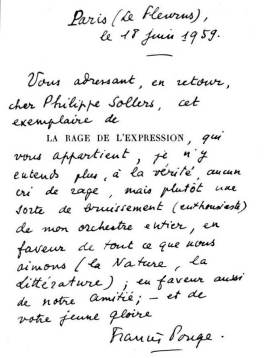 Paris (Le Fleurus),
le 18 juin 1959.
Vous adressant, en retour,
cher Philippe Sollers, cet
exemplaire de
LA RAGE DE L'EXPRESSION, qui
vous appartient, je n'y
entends plus, à la vérité, aucun
cri de rage, mais plutôt une
sorte de bruissement (enthousiaste)
de mon orchestre entier, en
faveur de tout ce que nous
aimons (la Nature, la
littérature) ; en faveur aussi
de notre amitié ; – et de
votre jeune gloire
Francis Ponge.